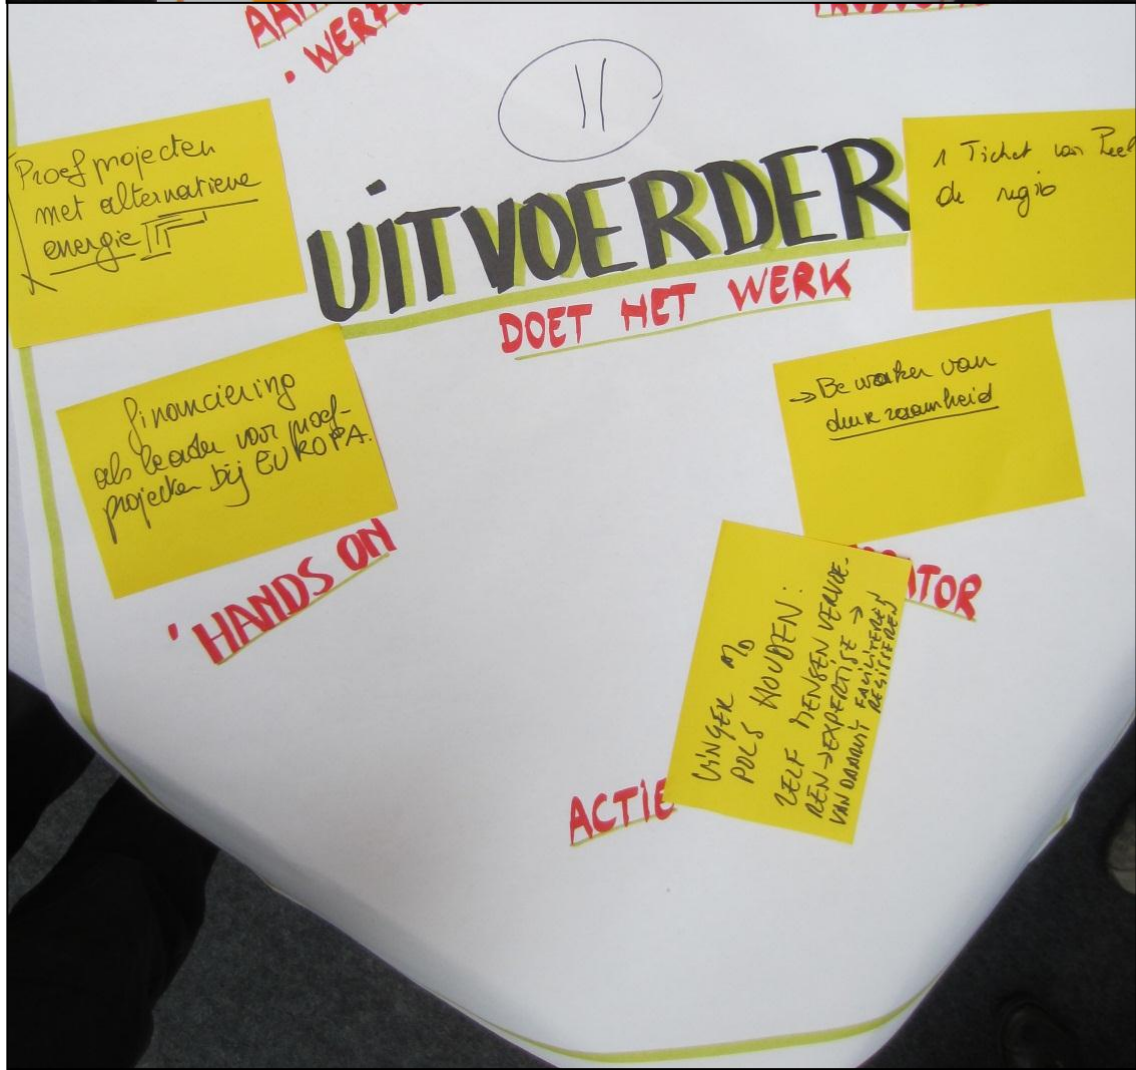 WERF
11
Proefprojecten
met alternatieve
energie
UITVOERDER
DOET HET WERK
1 Ticket van heel
de regio
financiering
als leader voor proef-
projecten bij EUROPA.
→ Bewaker van
duurzaamheid
• HANDS ON
ATOR
VINGER AAN
POLS HOUDEN:
ZELF MENSEN VERVOE-
REN → EXPERTISE →
VAN DAARUIT FACILITEREN
REGISSEREN
ACTIE